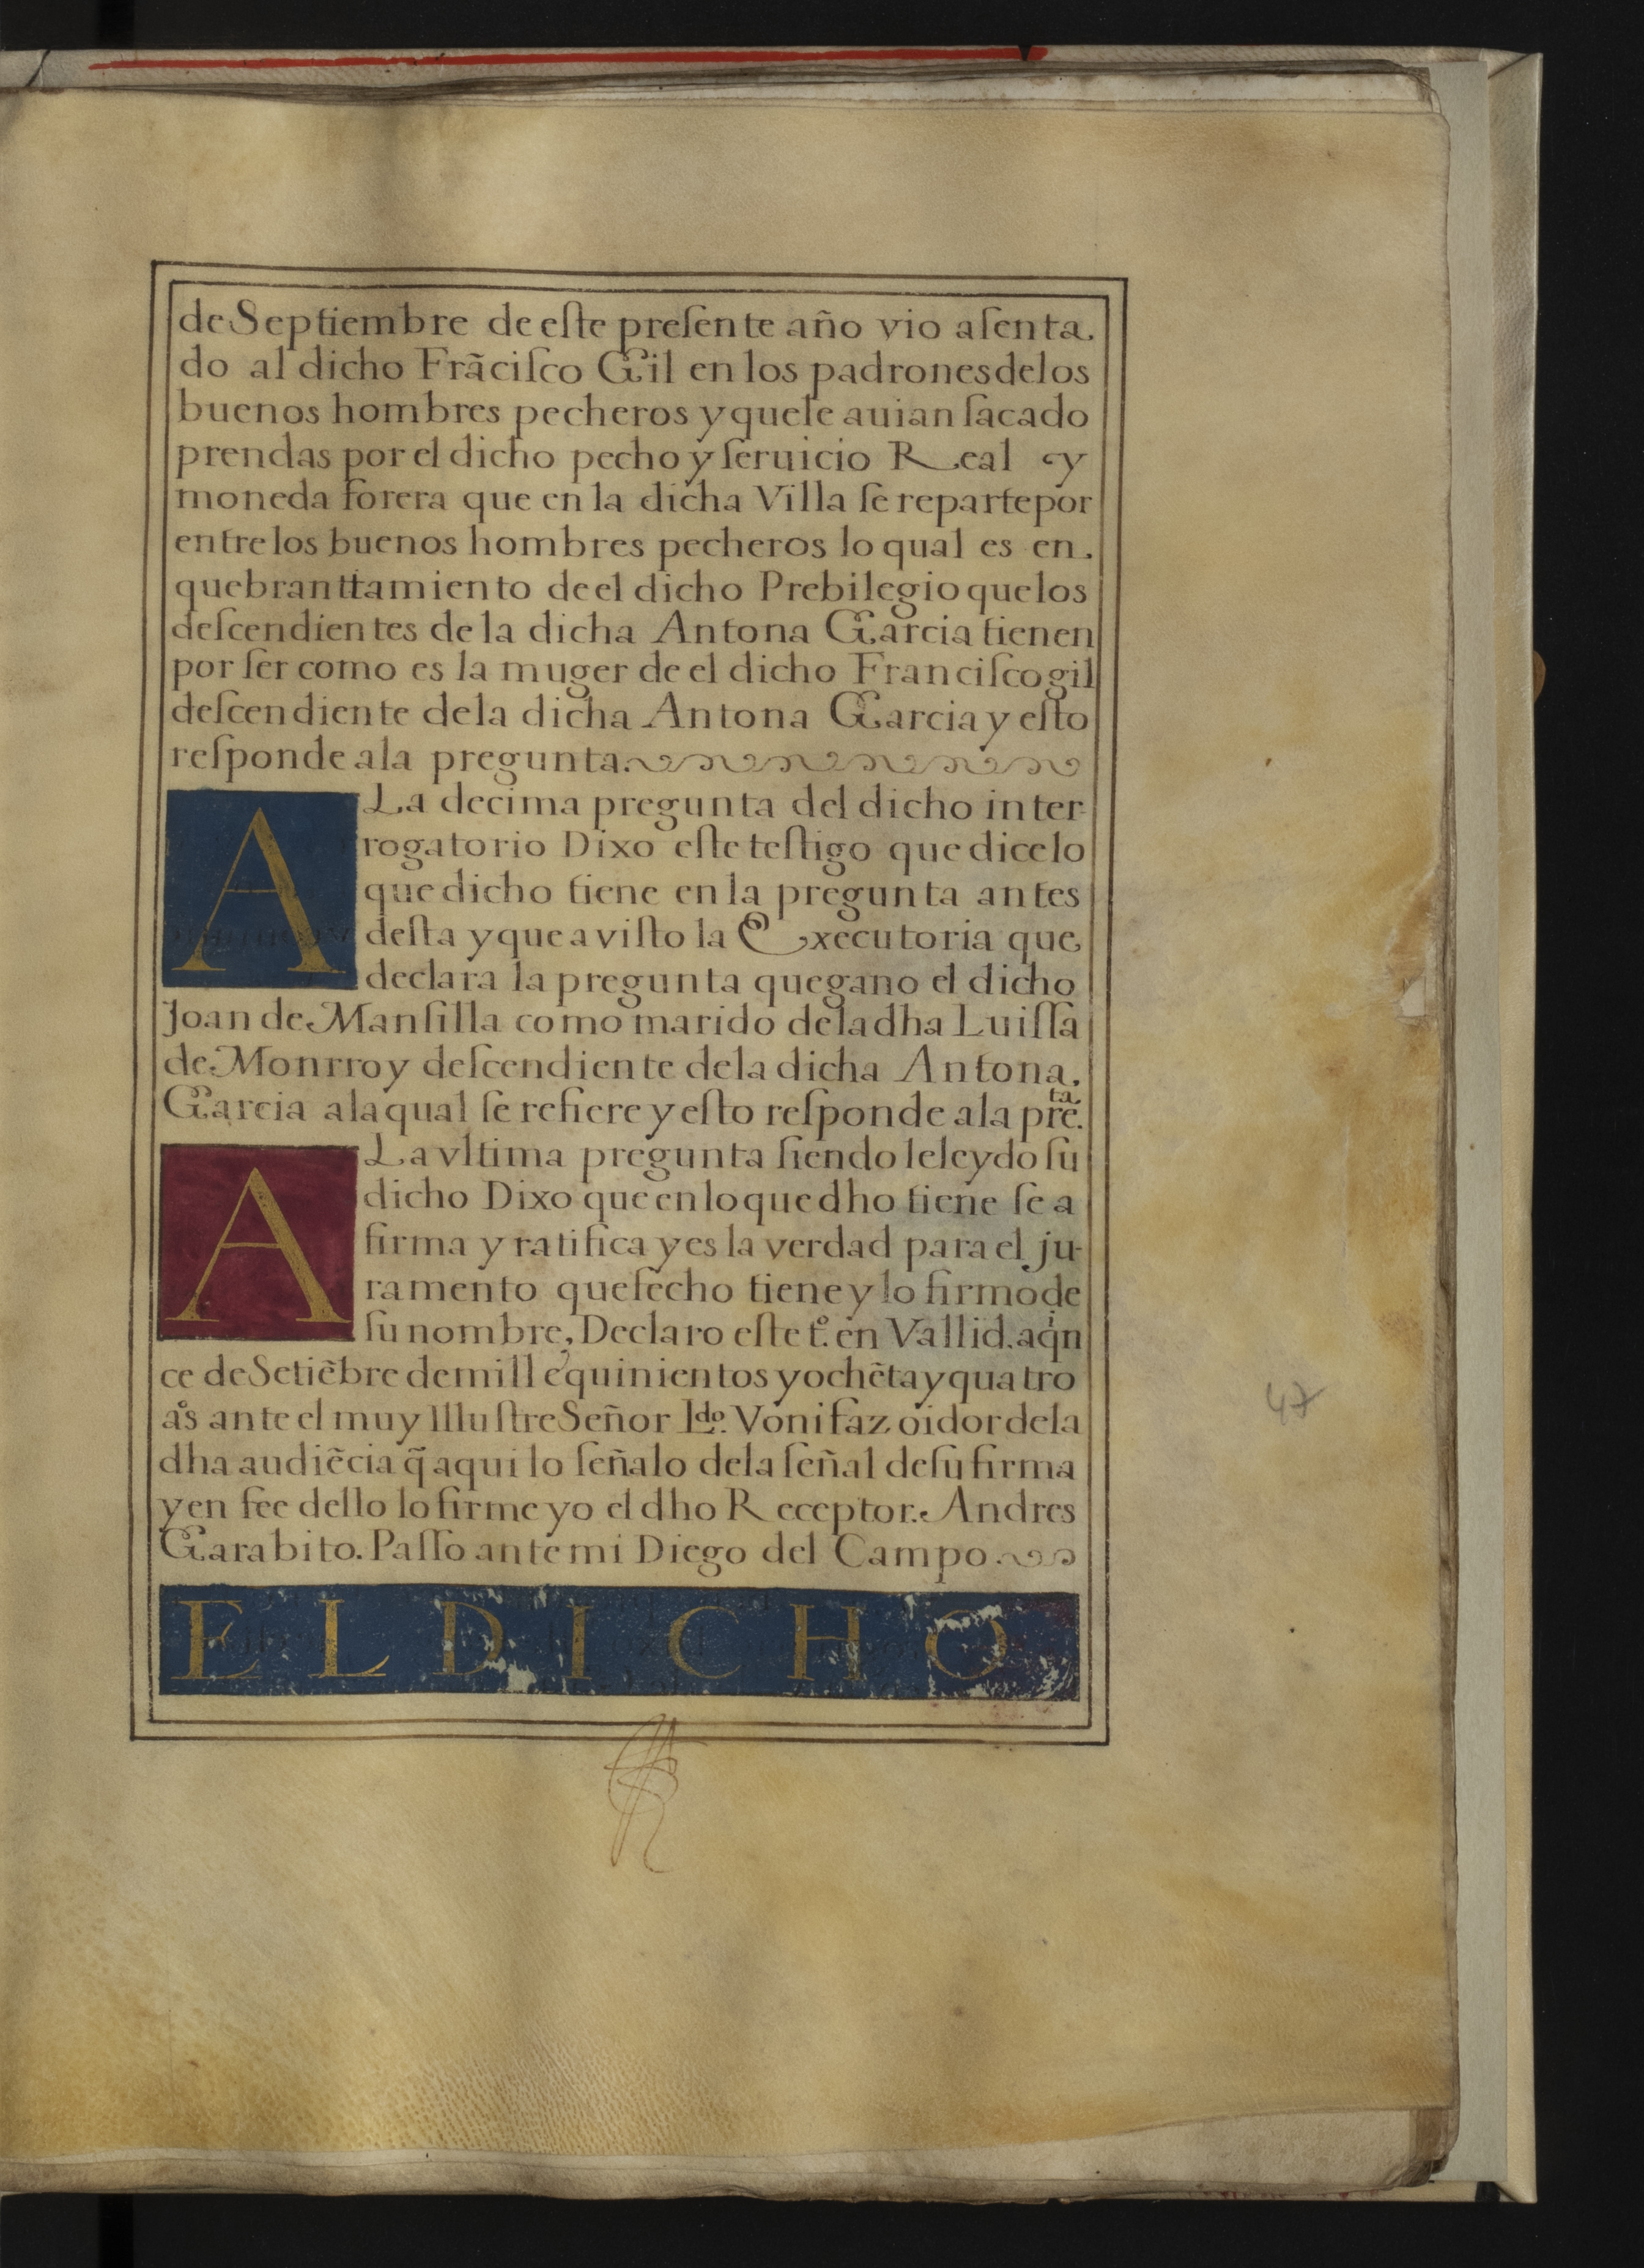 de Septiembre de eſte preſente año vio aſenta.
do al dicho Frãciſco Gil en los padrones de los
buenos hombres pecheros y que le auian ſacado
prendas por el dicho pecho y ſeruicio Real y
moneda forera que en la dicha Villa ſe reparte por
entre los buenos hombres pecheros lo qual es en.
quebranttamiento de el dicho Prebilegio que los
deſcendientes de la dicha Antona Garcia tienen
por ſer como es la muger de el dicho Franciſco gil
deſcendiente de la dicha Antona Garcia y eſto
reſponde a la pregunta.
A La decima pregunta del dicho inter-
rogatorio Dixo eſte teſtigo que dice lo
que dicho tiene en la pregunta antes
deſta y que a viſto la Executoria que
declara la pregunta que gano el dicho
Joan de Manſilla como marido de la dha Luiſſa
de Monrroy deſcendiente de la dicha Antona.
Garcia a la qual ſe refiere y eſto reſponde a la preᵗᵃ.
A La vltima pregunta ſiendo le leydo ſu
dicho Dixo que en lo que dho tiene ſe a
firma y ratifica y es la verdad para el ju-
ramento que fecho tiene y lo firmo de
ſu nombre, Declaro eſte tº. en Vallid. a qⁱn
ce de Setiẽbre de mill e quinientos y ochẽta y quatro
aºs ante el muy Illuſtre Señor Ldo. Vonifaz oidor de la
dha audiẽcia q̃ aqui lo ſeñalo de la ſeñal de ſu firma
y en fee dello lo firme yo el dho Receptor. Andres
Garabito. Paſſo ante mi Diego del Campo
EL DICHO
47